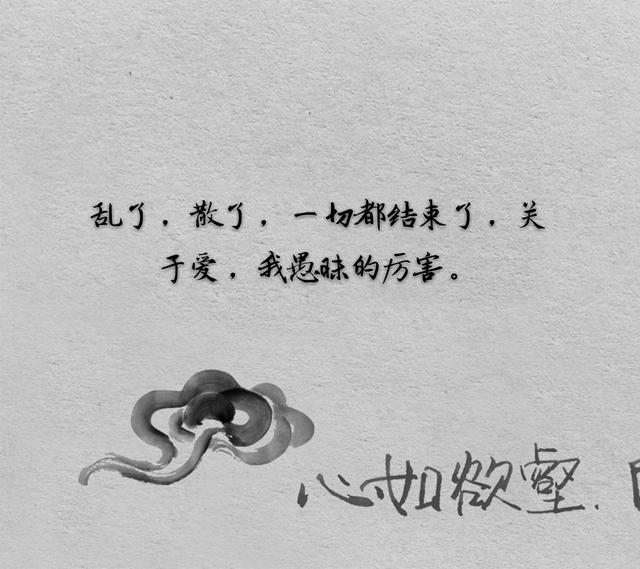 乱了，散了，一切都结束了，关
于爱，我愚昧的厉害。
心如欲壑.